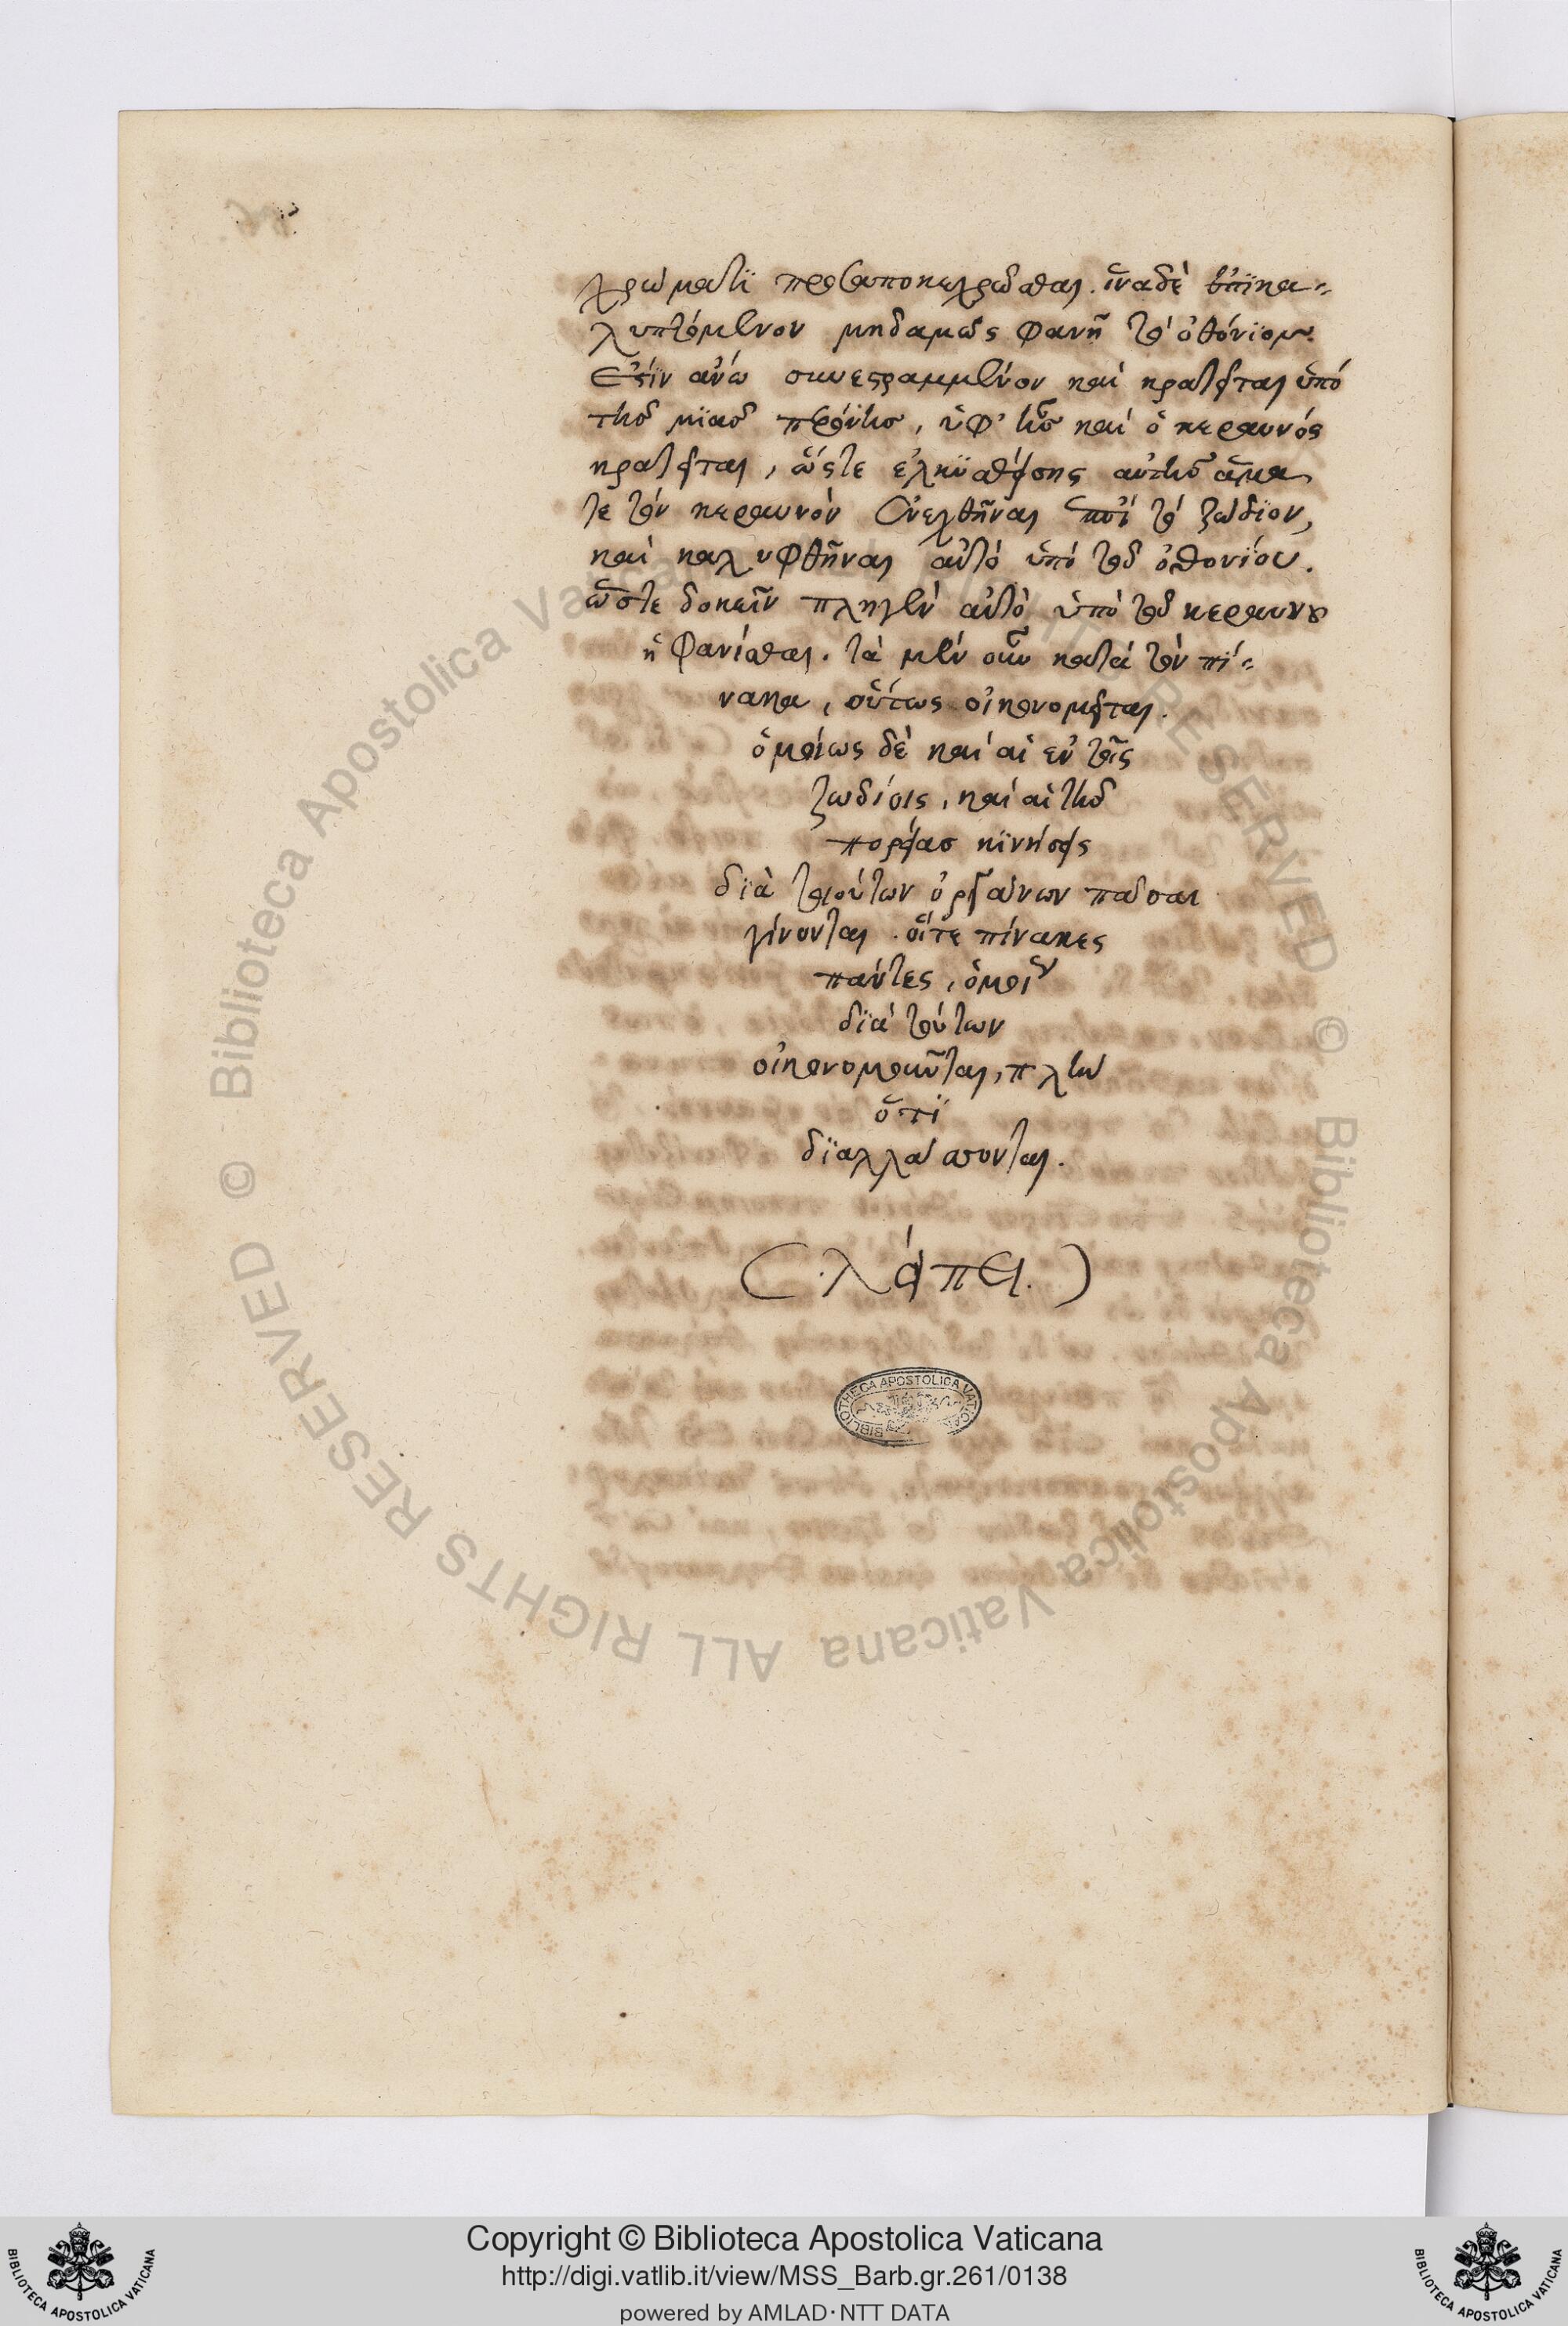 χρώματϊ προσαποκεχρῶσθαι. ἵνα δὲ ἐπϊκα-
λυπτόμενον μηδαμῶς φανῆ τὸ ὀθόνϊον.
ἐστὶν ἄνω συνεστραμμένον καὶ κρατεῖται ὑπὸ
τῆς μϊᾶς περόνης, ὑφ' ἧς καὶ ὁ κεραυνός
κρατεῖται, ὥστε ἑλκϋσθείσης αὐτῆς ἅμα
τε τὸν κεραυνὸν ἐνεχθῆναι ἐπὶ τὸ ζώδϊον,
καὶ καλυφθῆναι αὐτὸ ὑπὸ τοῦ ὀθονίου.
ὥστε δοκεῖν πληγὲν αὐτὸ ὑπὸ τοῦ κεραυνοῦ
ἠφανίσθαι. τὰ μὲν οὖν κατὰ τὸν πί-
νακα, οὕτως οἰκονομεῖται.
ὁμοίως δὲ καὶ αἱ ἐν τοῖς
ζωδίοις, καὶ αἱ τῆς
πορείας κϊνήσεις
δϊὰ τοιούτων ὀργάνων πᾶσαι
γίνονται. οἵ τε πίνακες
πάντες, ὁμοί
δϊὰ τούτων
οἰκονομοῦνται, πλὴν
ὅτϊ
δϊαλλάσσονται.
BIBLIOTHECA APOSTOLICA VATICANA
© Biblioteca Apostolica Vaticana ALL RIGHTS RESERVED
© Biblioteca Apostolica Vaticana ALL RIGHTS RESERVED
Copyright © Biblioteca Apostolica Vaticana
http://digi.vatlib.it/view/MSS_Barb.gr.261/0138
powered by AMLAD·NTT DATA
BIBLIOTECA APOSTOLICA VATICANA
BIBLIOTECA APOSTOLICA VATICANA